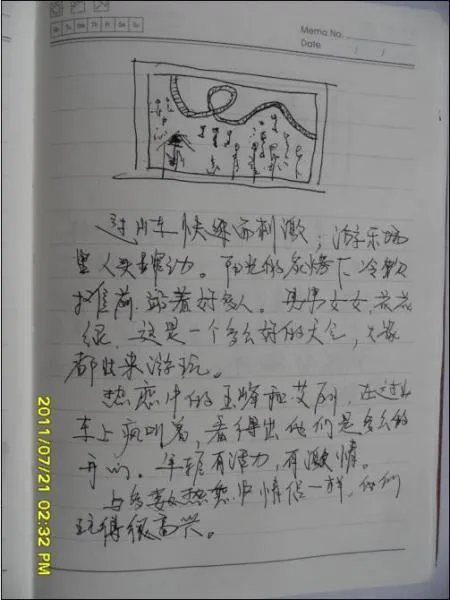 Mo Tu We Th Fr Sa Su
Memo No.
Date / /
过山车快速而刺激；游乐场
里人头攒动。阳光的炙烤下冷饮
摊前站着好多人。男男女女，花花
绿绿，这是一个多么好的天气，大家
都出来游玩。
热恋中的玉峰和艾刚，在过山
车上疯叫着，看得出他们是多么的
开心。年轻有活力，有激情。
与多数热恋中情侣一样，他们
玩得很高兴。
2011/07/21 02:32 PM